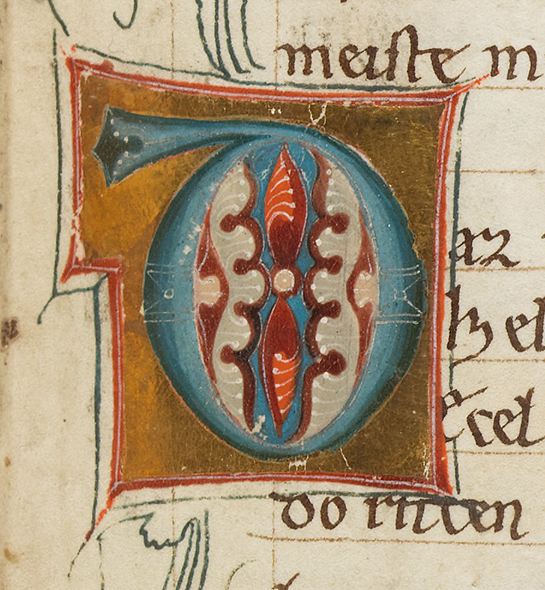 meiste m
D
az
hz el
Ecel
do ritten